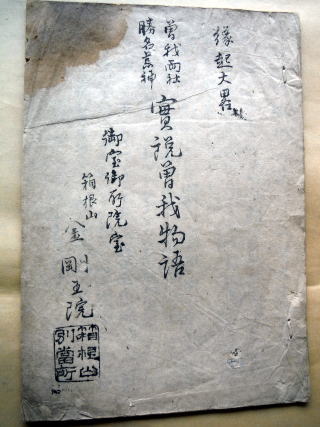 縁起大畧
曽我両社
勝名荒神
實説曽我物語
御宝御所院宝
箱根山
金剛王院
箱根山
別當所